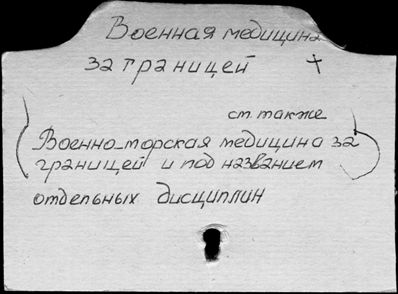 Военная медицина
за границей +
см. также
(Военно-морская медицина за
границей и под названием)
отдельных дисциплин